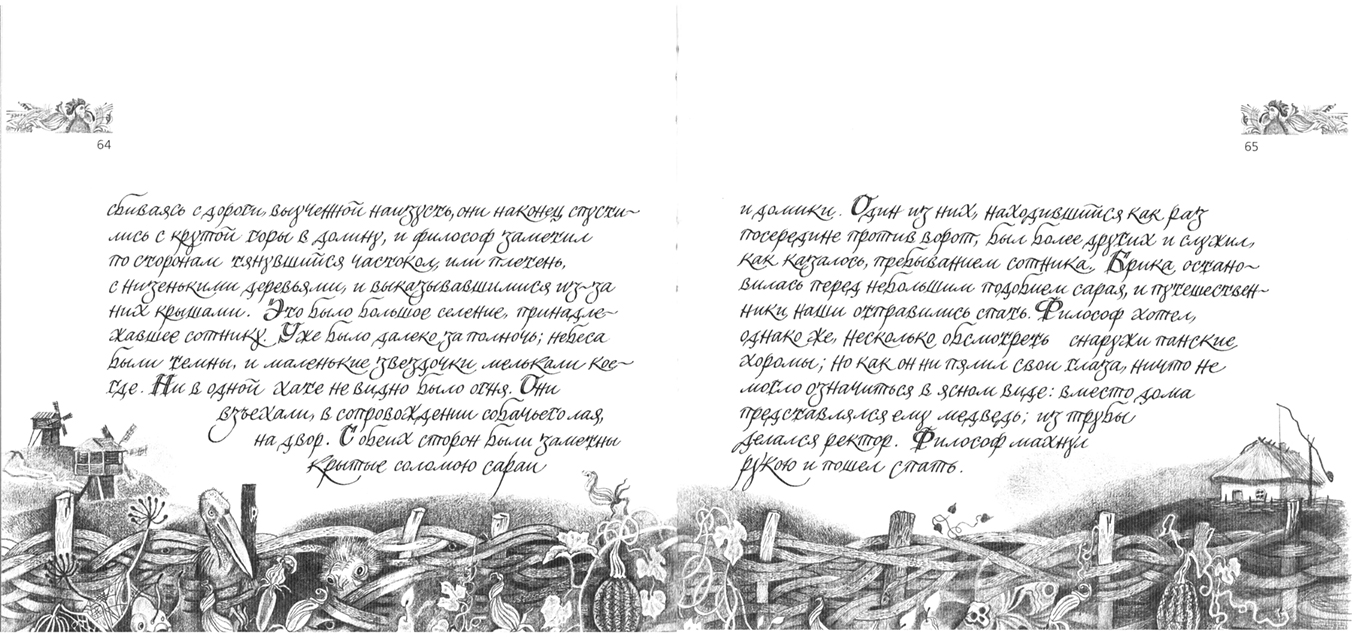 64
сбиваясь с дороги, выученной наизусть, они наконец спусти-
лись с крутой горы в долину, и философ заметил
по сторонам тянувшийся частокол, или плетень,
с низенькими деревьями, и выказывавшимися из-за
них крышами. Это было большое селение, принадле-
жавшее сотнику. Уже было далеко за полночь; небеса
были темны, и маленькие звездочки мелькали кое-
где. Ни в одной хате не видно было огня. Они
взъехали, в сопровождении собачьего лая,
на двор. С обеих сторон были заметны
крытые соломою сараи
65
и домики. Один из них, находившийся как раз
посередине против ворот, был более других и служил,
как казалось, пребыванием сотника. Брика остано-
вилась перед небольшим подобием сарая, и путешествен-
ники наши отправились спать. Философ хотел,
однако же, несколько обсмотреть снаружи панские
хоромы; но как он ни пялил свои глаза, ничто не
могло означиться в ясном виде: вместо дома
представлялся ему медведь; из трубы
делался ректор. Философ махнул
рукою и пошел спать.